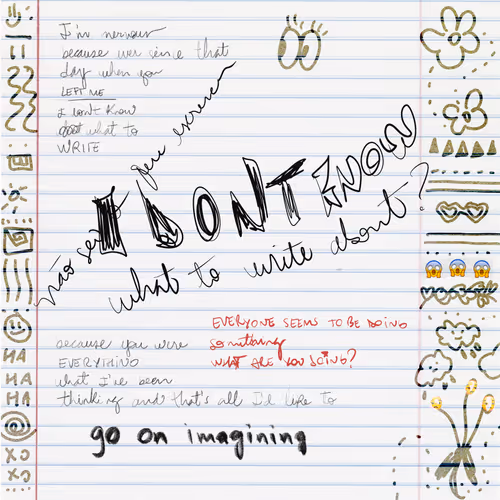 I'm nervous
because ever since that
day when you
LEFT ME
I don't know
what to
WRITE
não sei o que escrever
I DONT KNOW
what to write about?
EVERYONE SEEMS TO BE DOING
something
WHAT ARE YOU DOING?
because you were
EVERYTHING
what I've been
thinking and that's all I'd like to
go on imagining
HA
HA
HA
XO
XO